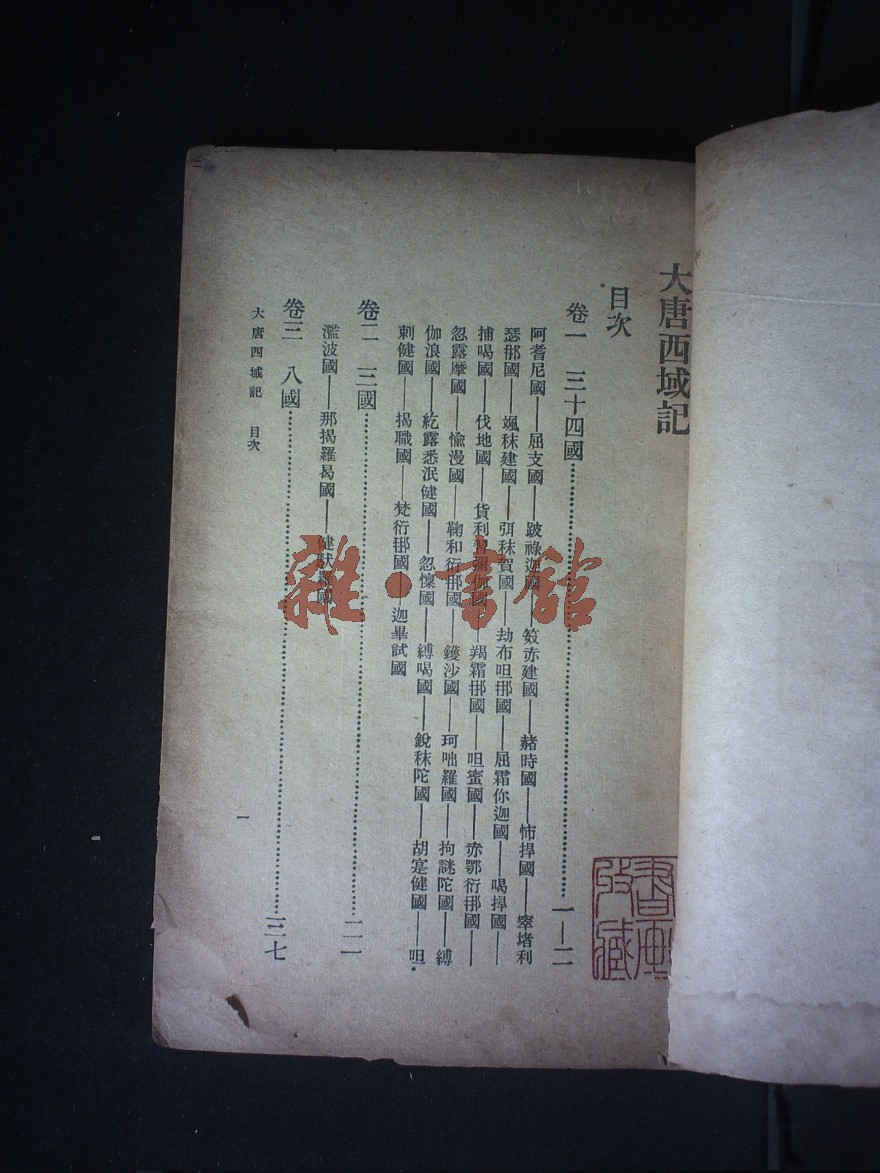 大唐西域記
目次
卷一　三十四國……一—二
阿耆尼國——屈支國——跋祿迦國——笯赤建國——赭時國——㤄捍國——窣堵利
瑟那國——颯秣建國——弭秣賀國——劫布呾那國——屈霜你迦國——喝捍國——
捕喝國——伐地國——貨利習彌伽國——羯霜那國——呾蜜國——赤鄂衍那國——
忽露摩國——愉漫國——鞠和衍那國——鑊沙國——珂咄羅國——拘謎陀國——縛
伽浪國——紇露悉泯健國——忽懍國——縛喝國——銳秣陀國——胡寔健國——呾
剌健國——揭職國——梵衍那國——迦畢試國
卷二　三國……二一
濫波國——那揭羅曷國——健馱羅國
卷三　八國……三七
大唐西域記　目次
一
雜·書館
書藏